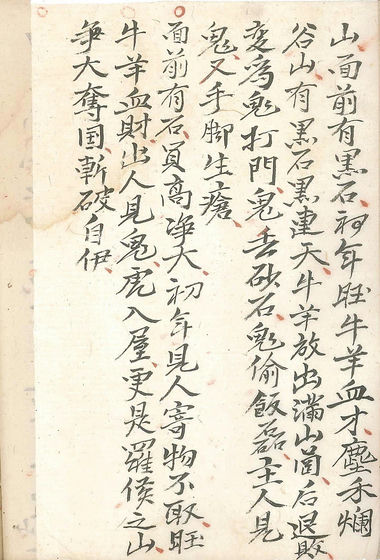 山面前有黑石初年旺牛羊血才塵禾爛
谷山有黑石黑連天牛羊放出滿山崗后退敗
变爲鬼打門鬼丢砂石鬼偷飯甑主人見
鬼又手脚生瘡
面前有石員高净大初年見人寄物不取旺
牛羊血財出人見鬼虎入屋更是羅侯之山
争大奪国斬破自伊